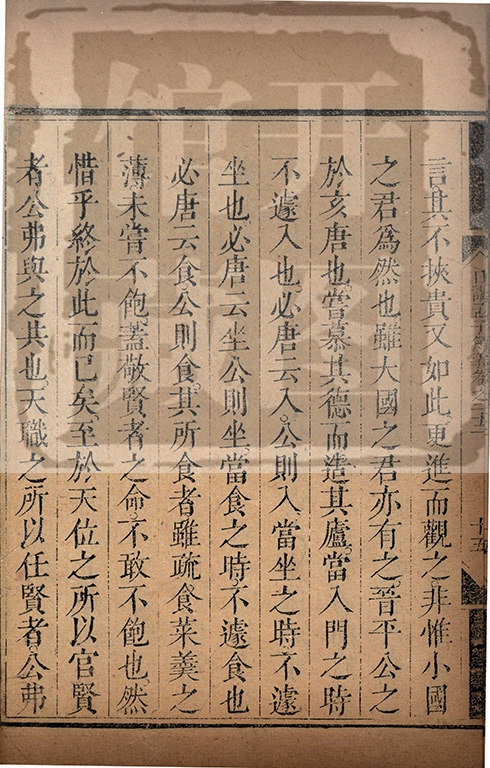 言其不挾貴又如此更進而觀之非惟小國
之君爲然也雖大國之君亦有之晉平公之
於亥唐也嘗慕其德而造其廬當入門之時
不遽入也必唐云入公則入當坐之時不遽
坐也必唐云坐公則坐當食之時不遽食也
必唐云食公則食其所食者雖疏食菜羹之
薄未嘗不飽蓋敬賢者之命不敢不飽也然
惜乎終於此而已矣至於天位之所以官賢
者公弗與之共也天職之所以任賢者公弗
十五